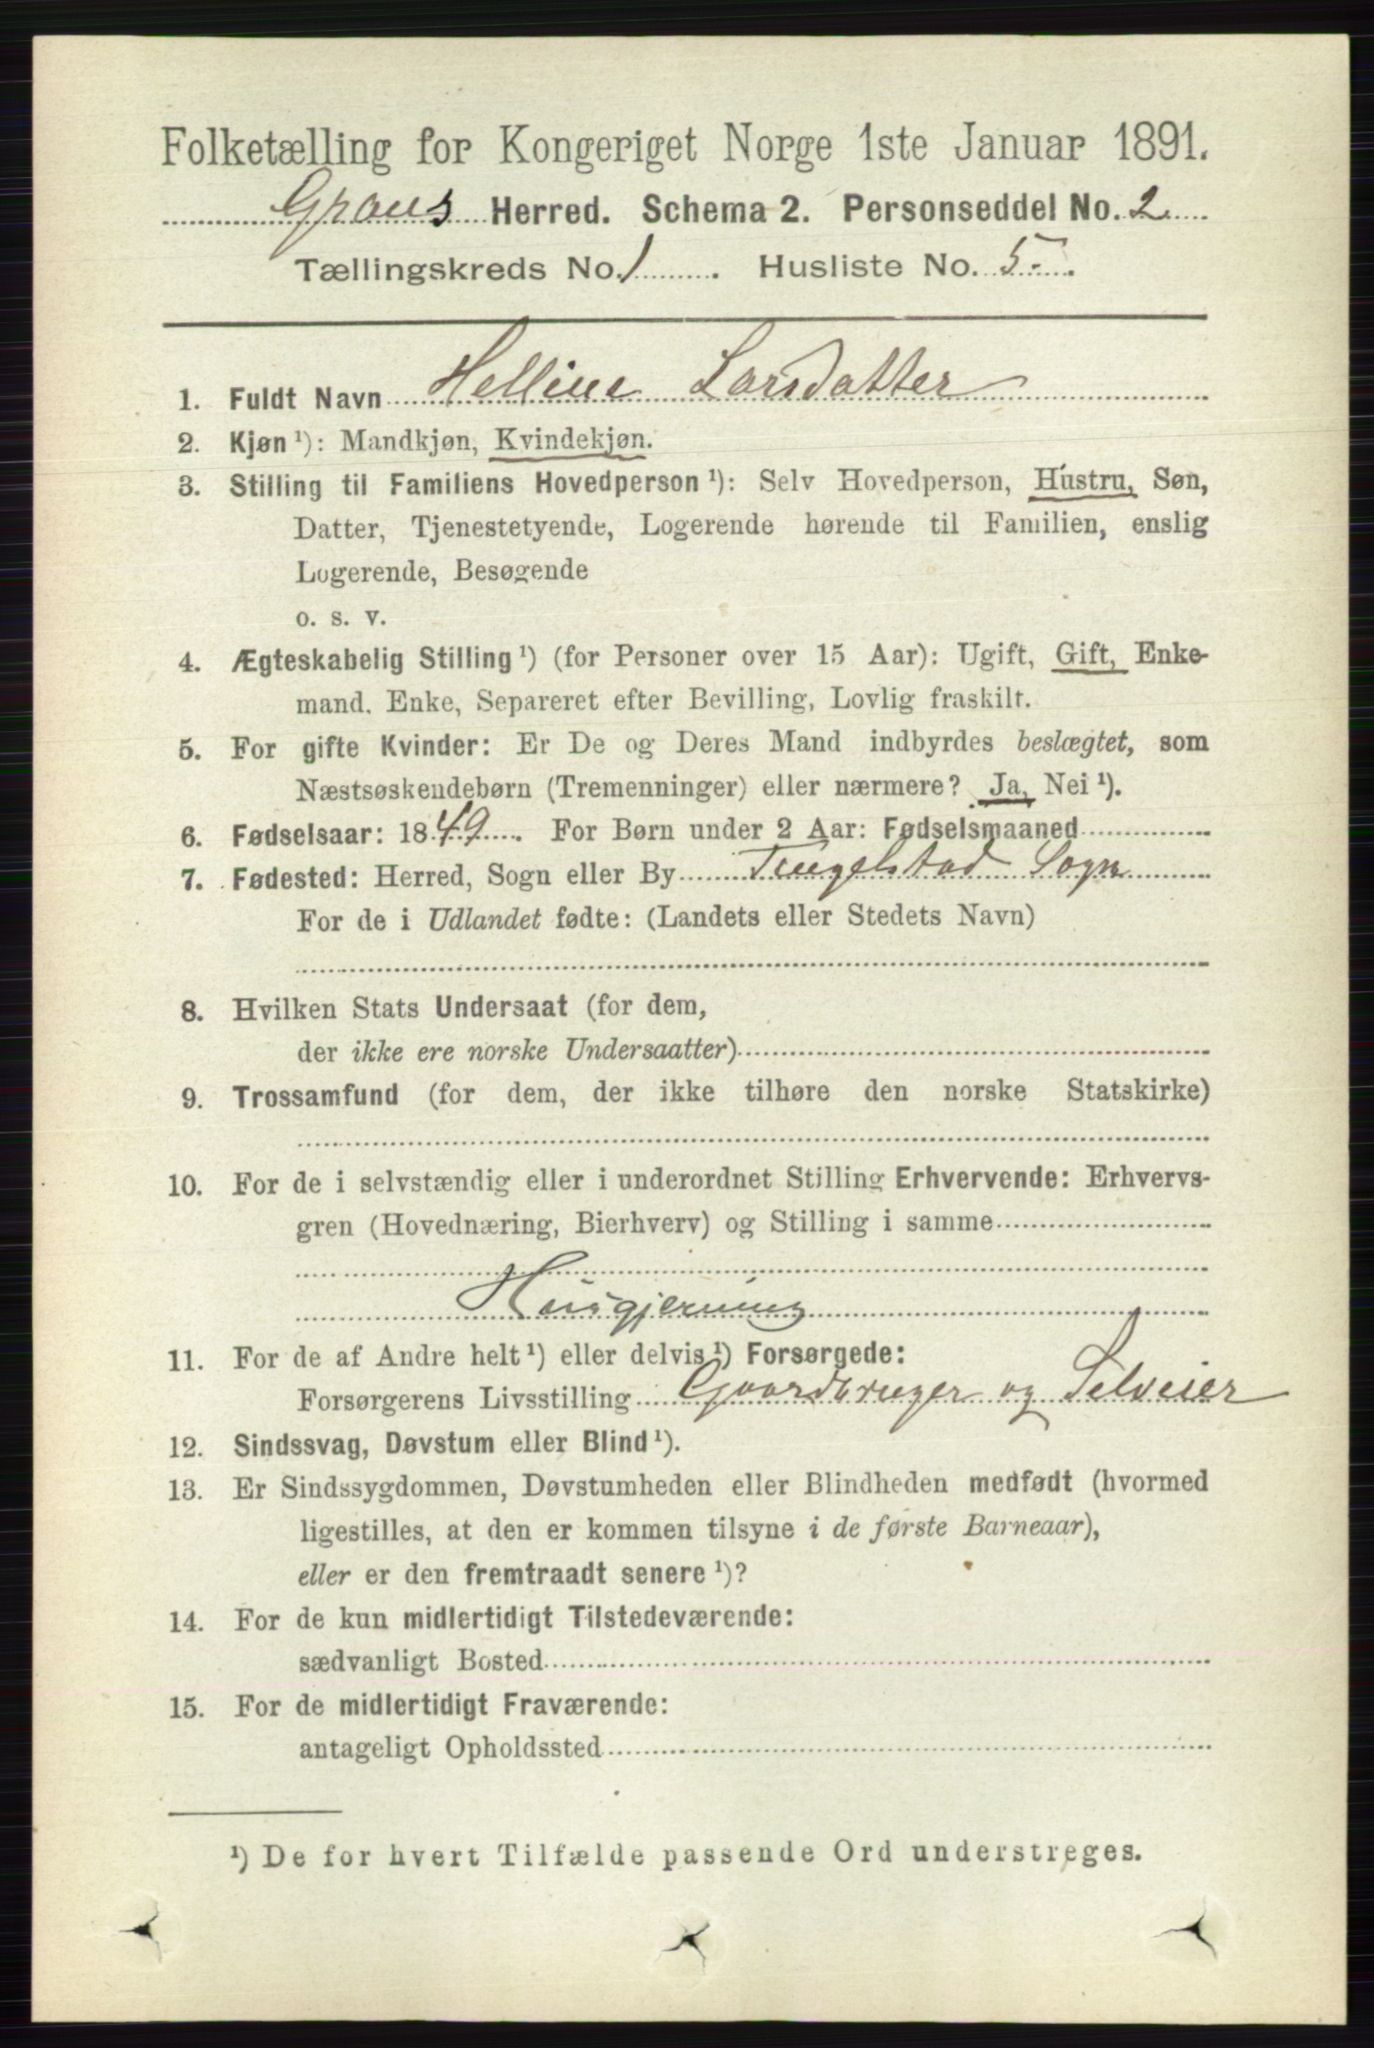 Folketælling for Kongeriget Norge 1ste Januar 1891.
Grans Herred. Schema 2. Personseddel No. 2
Tællingskreds No. 1. Husliste No. 5.
1. Fuldt Navn Helline Larsdatter
2. Kjøn ¹): Mandkjøn, Kvindekjøn.
3. Stilling til Familiens Hovedperson ¹): Selv Hovedperson, Hustru, Søn,
Datter, Tjenestetyende, Logerende hørende til Familien, enslig
Logerende, Besøgende
o. s. v.
4. Ægteskabelig Stilling ¹) (for Personer over 15 Aar): Ugift, Gift, Enke-
mand. Enke, Separeret efter Bevilling, Lovlig fraskilt.
5. For gifte Kvinder: Er De og Deres Mand indbyrdes beslægtet, som
Næstsøskendebørn (Tremenninger) eller nærmere? Ja, Nei ¹).
6. Fødselsaar: 1849. For Børn under 2 Aar: Fødselsmaaned
7. Fødested: Herred, Sogn eller By Tingelstad Sogn
For de i Udlandet fødte: (Landets eller Stedets Navn)
8. Hvilken Stats Undersaat (for dem,
der ikke ere norske Undersaatter)
9. Trossamfund (for dem, der ikke tilhøre den norske Statskirke)
10. For de i selvstændig eller i underordnet Stilling Erhvervende: Erhvervs-
gren (Hovednæring, Bierhverv) og Stilling i samme
Husgjerning
11. For de af Andre helt ¹) eller delvis ¹) Forsørgede:
Forsørgerens Livsstilling Gaardbruger og Selveier
12. Sindssvag, Døvstum eller Blind ¹).
13. Er Sindssygdommen, Døvstumheden eller Blindheden medfødt (hvormed
ligestilles, at den er kommen tilsyne i de første Barneaar),
eller er den fremtraadt senere ¹)?
14. For de kun midlertidigt Tilstedeværende:
sædvanligt Bosted
15. For de midlertidigt Fraværende:
antageligt Opholdssted
¹) De for hvert Tilfælde passende Ord understreges.